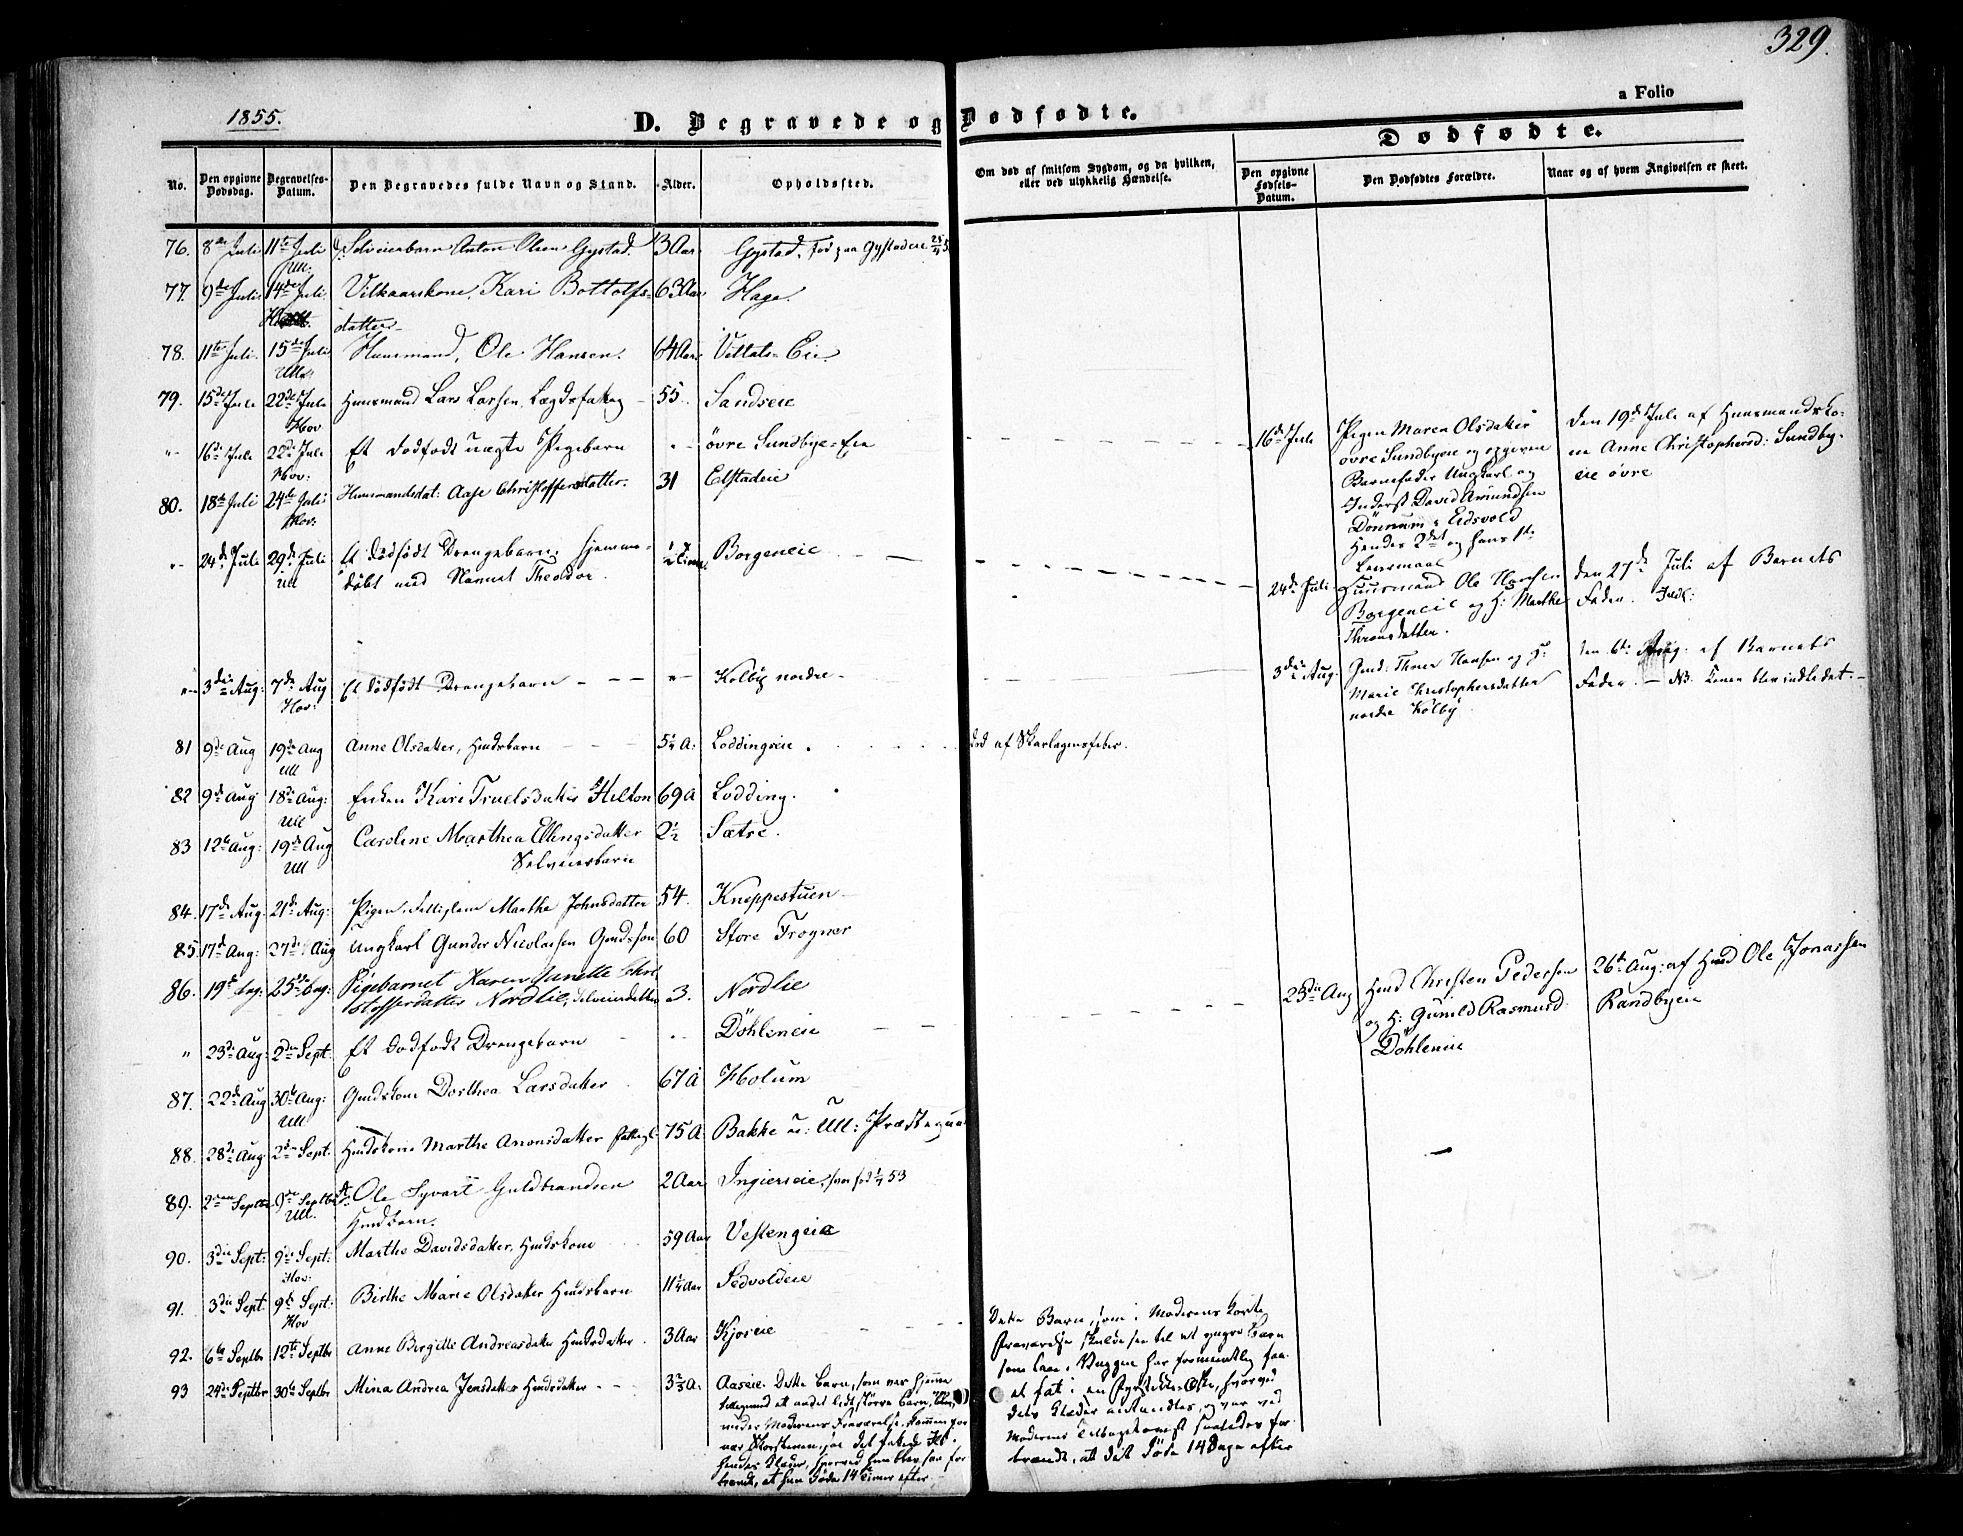 329.
1855.
a Folio
D. Begravede og Dødfødte.
Dødfødte.
No.
Den opgivne Dødsdag.
Begravelses-Datum.
Den Begravedes fulde Navn og Stand.
Alder.
Opholdssted.
Om død af smitsom Sygdom, og da hvilken, eller ved ulykkelig Hændelse.
Den opgivne Fødsels-Datum.
Den Dødfødtes Forældre.
Naar og af hvem Angivelsen er skeet.
76. 8de Juli 11te Juli Selveierbarn Anton Olsen Gystad. 3 Aar. Gystad. Fød paa Gystadeie
Ull:
77. 9de Juli 14de Juli. Vilkaarskone, Kari Bottolfs- 63 Aar Hage.
datter
78. 11te Juli. 15de Juli Huusmand, Ole Hansen. 64 Aar. Eie
Ull:
79. 15de Jule 22de Jule Huusmand Lars Larsen, Lægdsfattig 55. Sandseie
Hov
" 16de Jule 22de Jule Et dodfodt uægte Pigebarn " øvre Sundbye-Eie
Hov:
16de Jule Pigen Maren Olsdatter
øvre Sundbyeie og opgiven
Barnefader Ungkarl og
Inderst David Amundsen
Dönnum i Eidsvold
Hendes 2det og hans 1te
Leiermaal
Den 19de Jule af Huusmandsko-
ne Anne Christophersd: Sundby-
eie øvre
80. 18de Juli 24de Juli Huusmandsdat: Aase Christoffersdatter. 31 Elstadeie
Hov:
" 24de Juli 29de Juli Et dödfödt Drengebarn, hjemme- Time Borgeneie
Ull döbt med Navnet Theodor.
24de Juli Huusmand Ole Hansen
Borgeneie og H: Marthe
Thronsdatter.
den 27de Juli af Barnets
Fader. Indl:
" 3die Aug: 7de Aug Et dödfödt Drengebarn " Kolby nordre
Hov:
3die Aug. Gmd: Hansen og H:
Marie Kristophersdatter
nordre Kölby
den 6te Aug: af Barnets
Fader. - NB. Konen blev indledet. -
81 9de Aug 19de Aug Anne Olsdatter, Huusbarn 5¼ A: Loddingseie . Død af Skarlagensfeber.
Ull
82 9de Aug 18de Aug: Enken Kari Truelsdatter Hilton 69 A Lodding.
Ull
83 12te Aug: 19de Aug Caroline Marthea Ellingsdatter 2½ Sætre.
Ull Selveierbarn
84. 17de Aug: 21de Aug: Pigen, Fattiglem Marthe Johnsdatter 54. Kneppestuen
85. 17de Aug: 27de Aug Ungkarl Gunder Nicolaisen Gmds-søn 60 Store Frogner
86. 19de Aug: 25de Aug: Pigebarnet Karen Janette Chri
stoffersdatter Nordlie, Selveierdatter 3. Nordlie
" 23de Aug: 2den Sept. Et dodfodt Drengebarn " Döhleneie
23die Aug Hmd Christen Pedersen
og H: Gunild Rasmusd.
Döhleneie
26de Aug: af Hmd Ole Jonassen
Randbyeie
87. 22de Aug 30te Aug: Gmdskone Dorthea Larsdatter 67 A Holum
Ull
88. 28de Aug 2den Sept: Hmdskone Marthe Amonsdatter fattigl. 75 A. Bakke u: Ull: Præstegaa
89. 2den Septbr. 9de Septbr Ole Syvart Guldbrandsen 2 Aar Ingierseie, 53
Ull. Hmdbarn.
90. 3die Sept: 9de Sept: Marthe Davidsdatter, Hmdskone 59 Aar Vestengeie
Hov:
91. 3die Sept. 9de Sept: Birthe Marie Olsdatter Hmdsbarn 11¼ Aar Sedvoldeie
Hov
92. 6te Septbr 12te Septbr Anne Birgitte Andreasdatter Hmdsdatter 3 Aar Kjoseie
Dette Barn, som i Moderens korte
Fraværelse skulde see til et yngre Barn
som laae i Vuggen har formentlig faa-
et fat i en Fyrstikke-Æske, hvorved
dets Klæder antændtes, og var ved
Moderens Tilbagekomst saaledes for-
brændt, at det döde 14 Dage efter
93 24de Septbr 30te Septbr Mina Andrea Jensdatter Hmdsdatter 3⅔ A. Aaseie. Dette Barn, som var hjemme
tilligemed et andet lidt större Barn,
under Moderens Fraværelse, kommen for
nær Skorstenen, saa det fattede Ild i
hendes Klæder, hvorved hun blev saa for-
brændt, at hun döde 14 Timer efter.